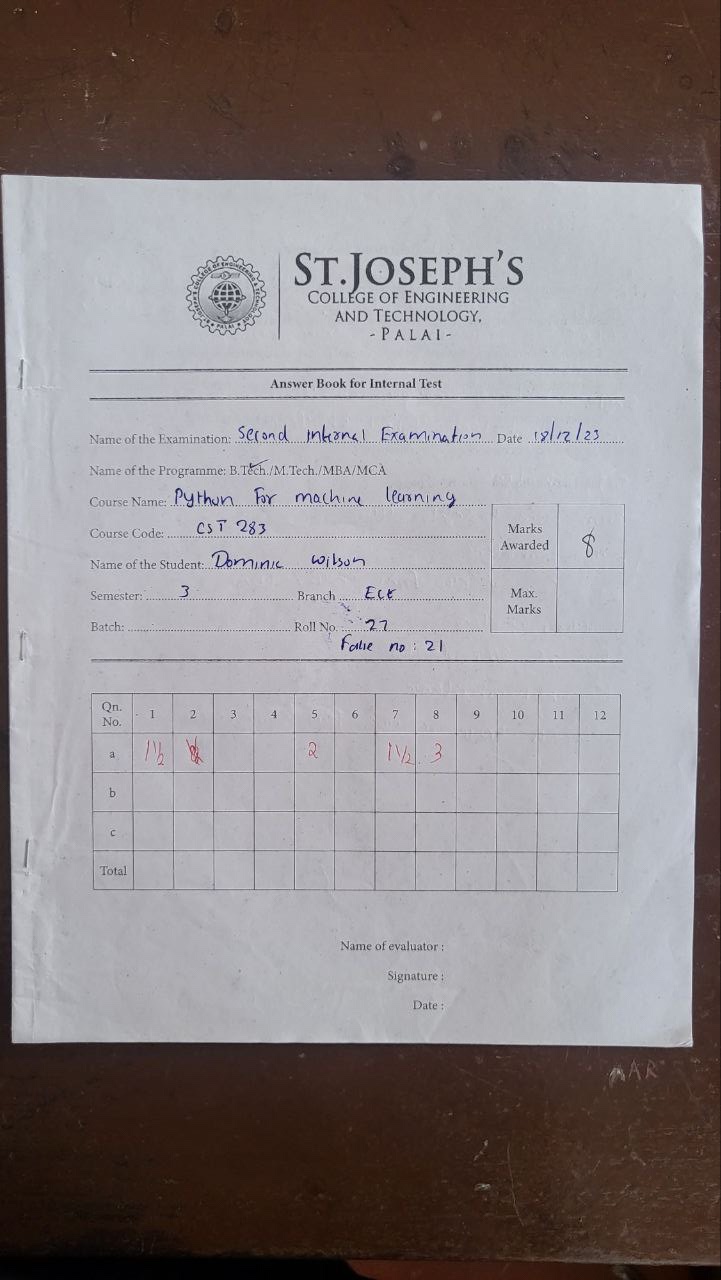 ST.JOSEPH'S
COLLEGE OF ENGINEERING
AND TECHNOLOGY,
- PALAI -
Answer Book for Internal Test
Name of the Examination: Second Internal Examination Date 18/12/23
Name of the Programme: B.Tech./M.Tech./MBA/MCA
Course Name: Python For machine learning
Course Code: CST 283
Marks Awarded 8
Name of the Student: Dominic Wilson
Semester: 3 Branch ECE
Max. Marks
Batch: Roll No. 27
False no: 21
Qn. No. 1 2 3 4 5 6 7 8 9 10 11 12
a 1½ 2 1½ 3
b
c
Total
Name of evaluator :
Signature :
Date :